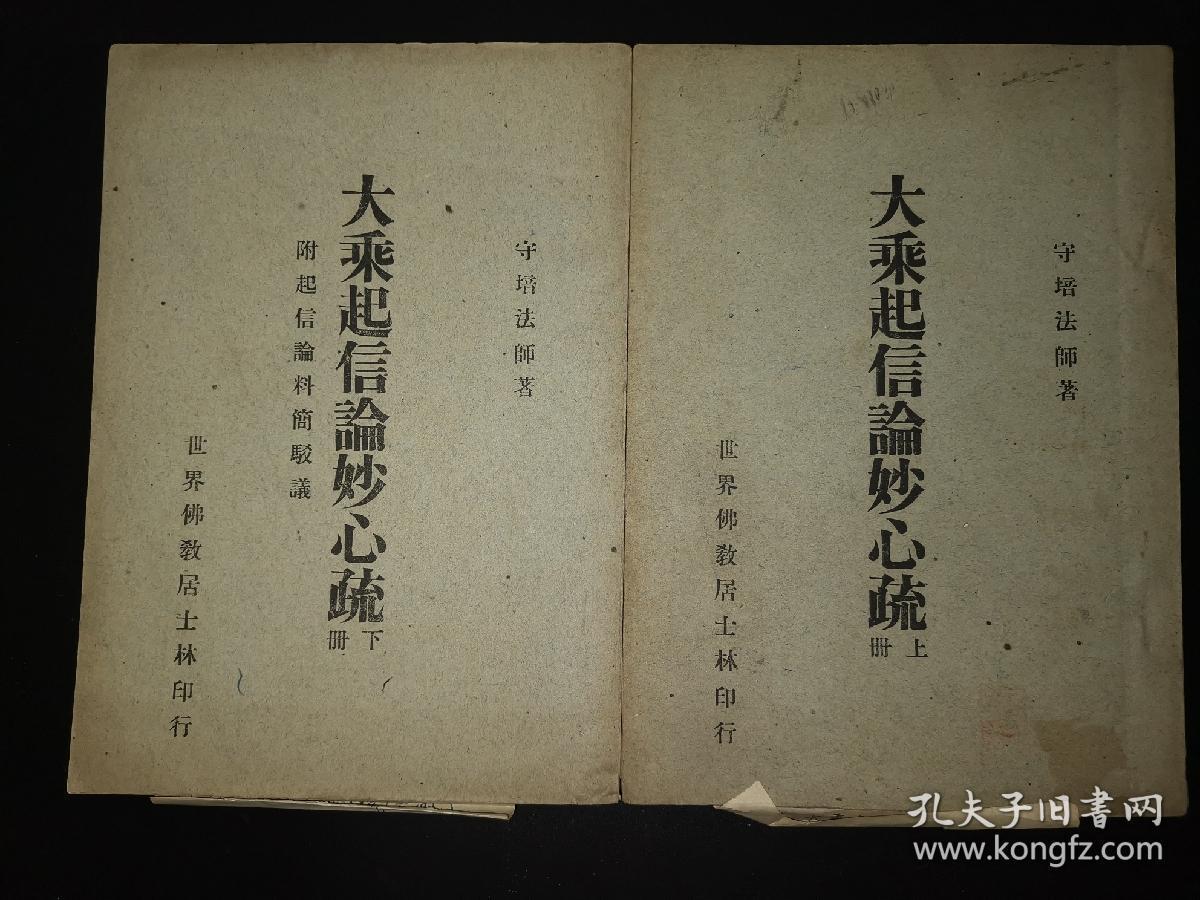 守培法師著
大乘起信論妙心疏
上冊
世界佛敎居士林印行
守培法師著
大乘起信論妙心疏
下冊
附起信論料簡駁議
世界佛敎居士林印行
孔夫子旧书网
www.kongfz.com